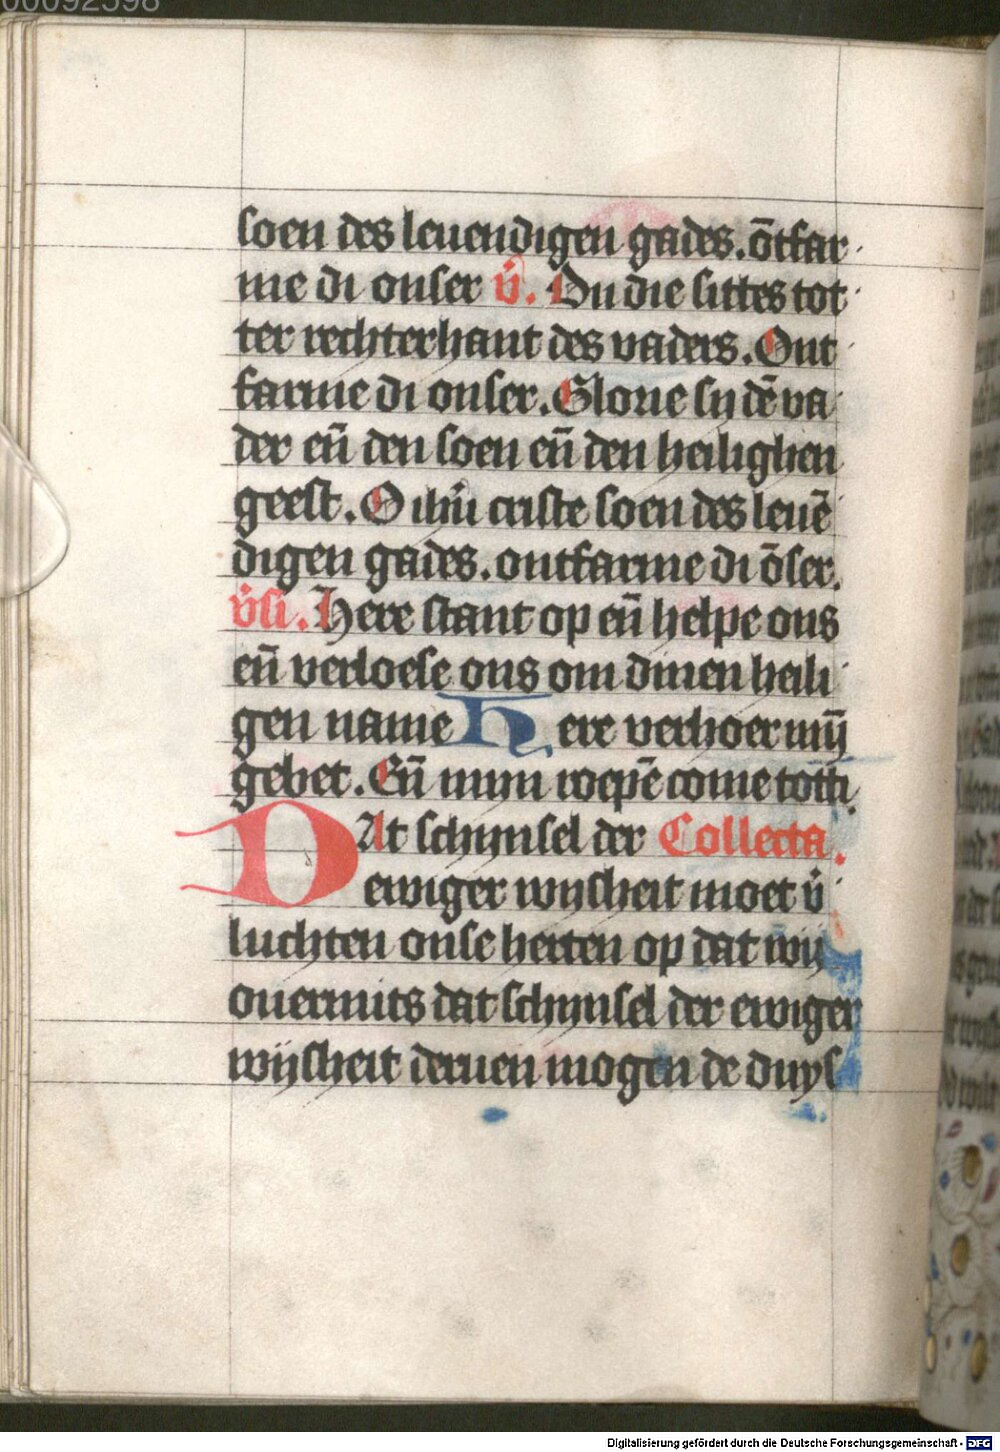 00092598
soen des leuendigen gades. ōtfar
me di onser v̄. Du die sittes tot
ter rechterhant des vaders. Ont
farme di onser. Glorie sy dē va
der eñ den soen eñ den heilighen
geest. O ihū criste soen des leuē
digen gades. ontfarme di ōser.
v̄si. Here stant op eñ helpe ons
eñ verloese ons om dinen heili
gen name Here verhoer mỹ
gebet. Eñ myn roepē come totti.
DAt schijnsel der Collecta.
ewiger wijsheit moet v̄
luchten onse herten op dat wij
ouermits dat schijnsel der ewiger
wijsheit deruen mogen de duys
Digitalisierung gefördert durch die Deutsche Forschungsgemeinschaft - DFG